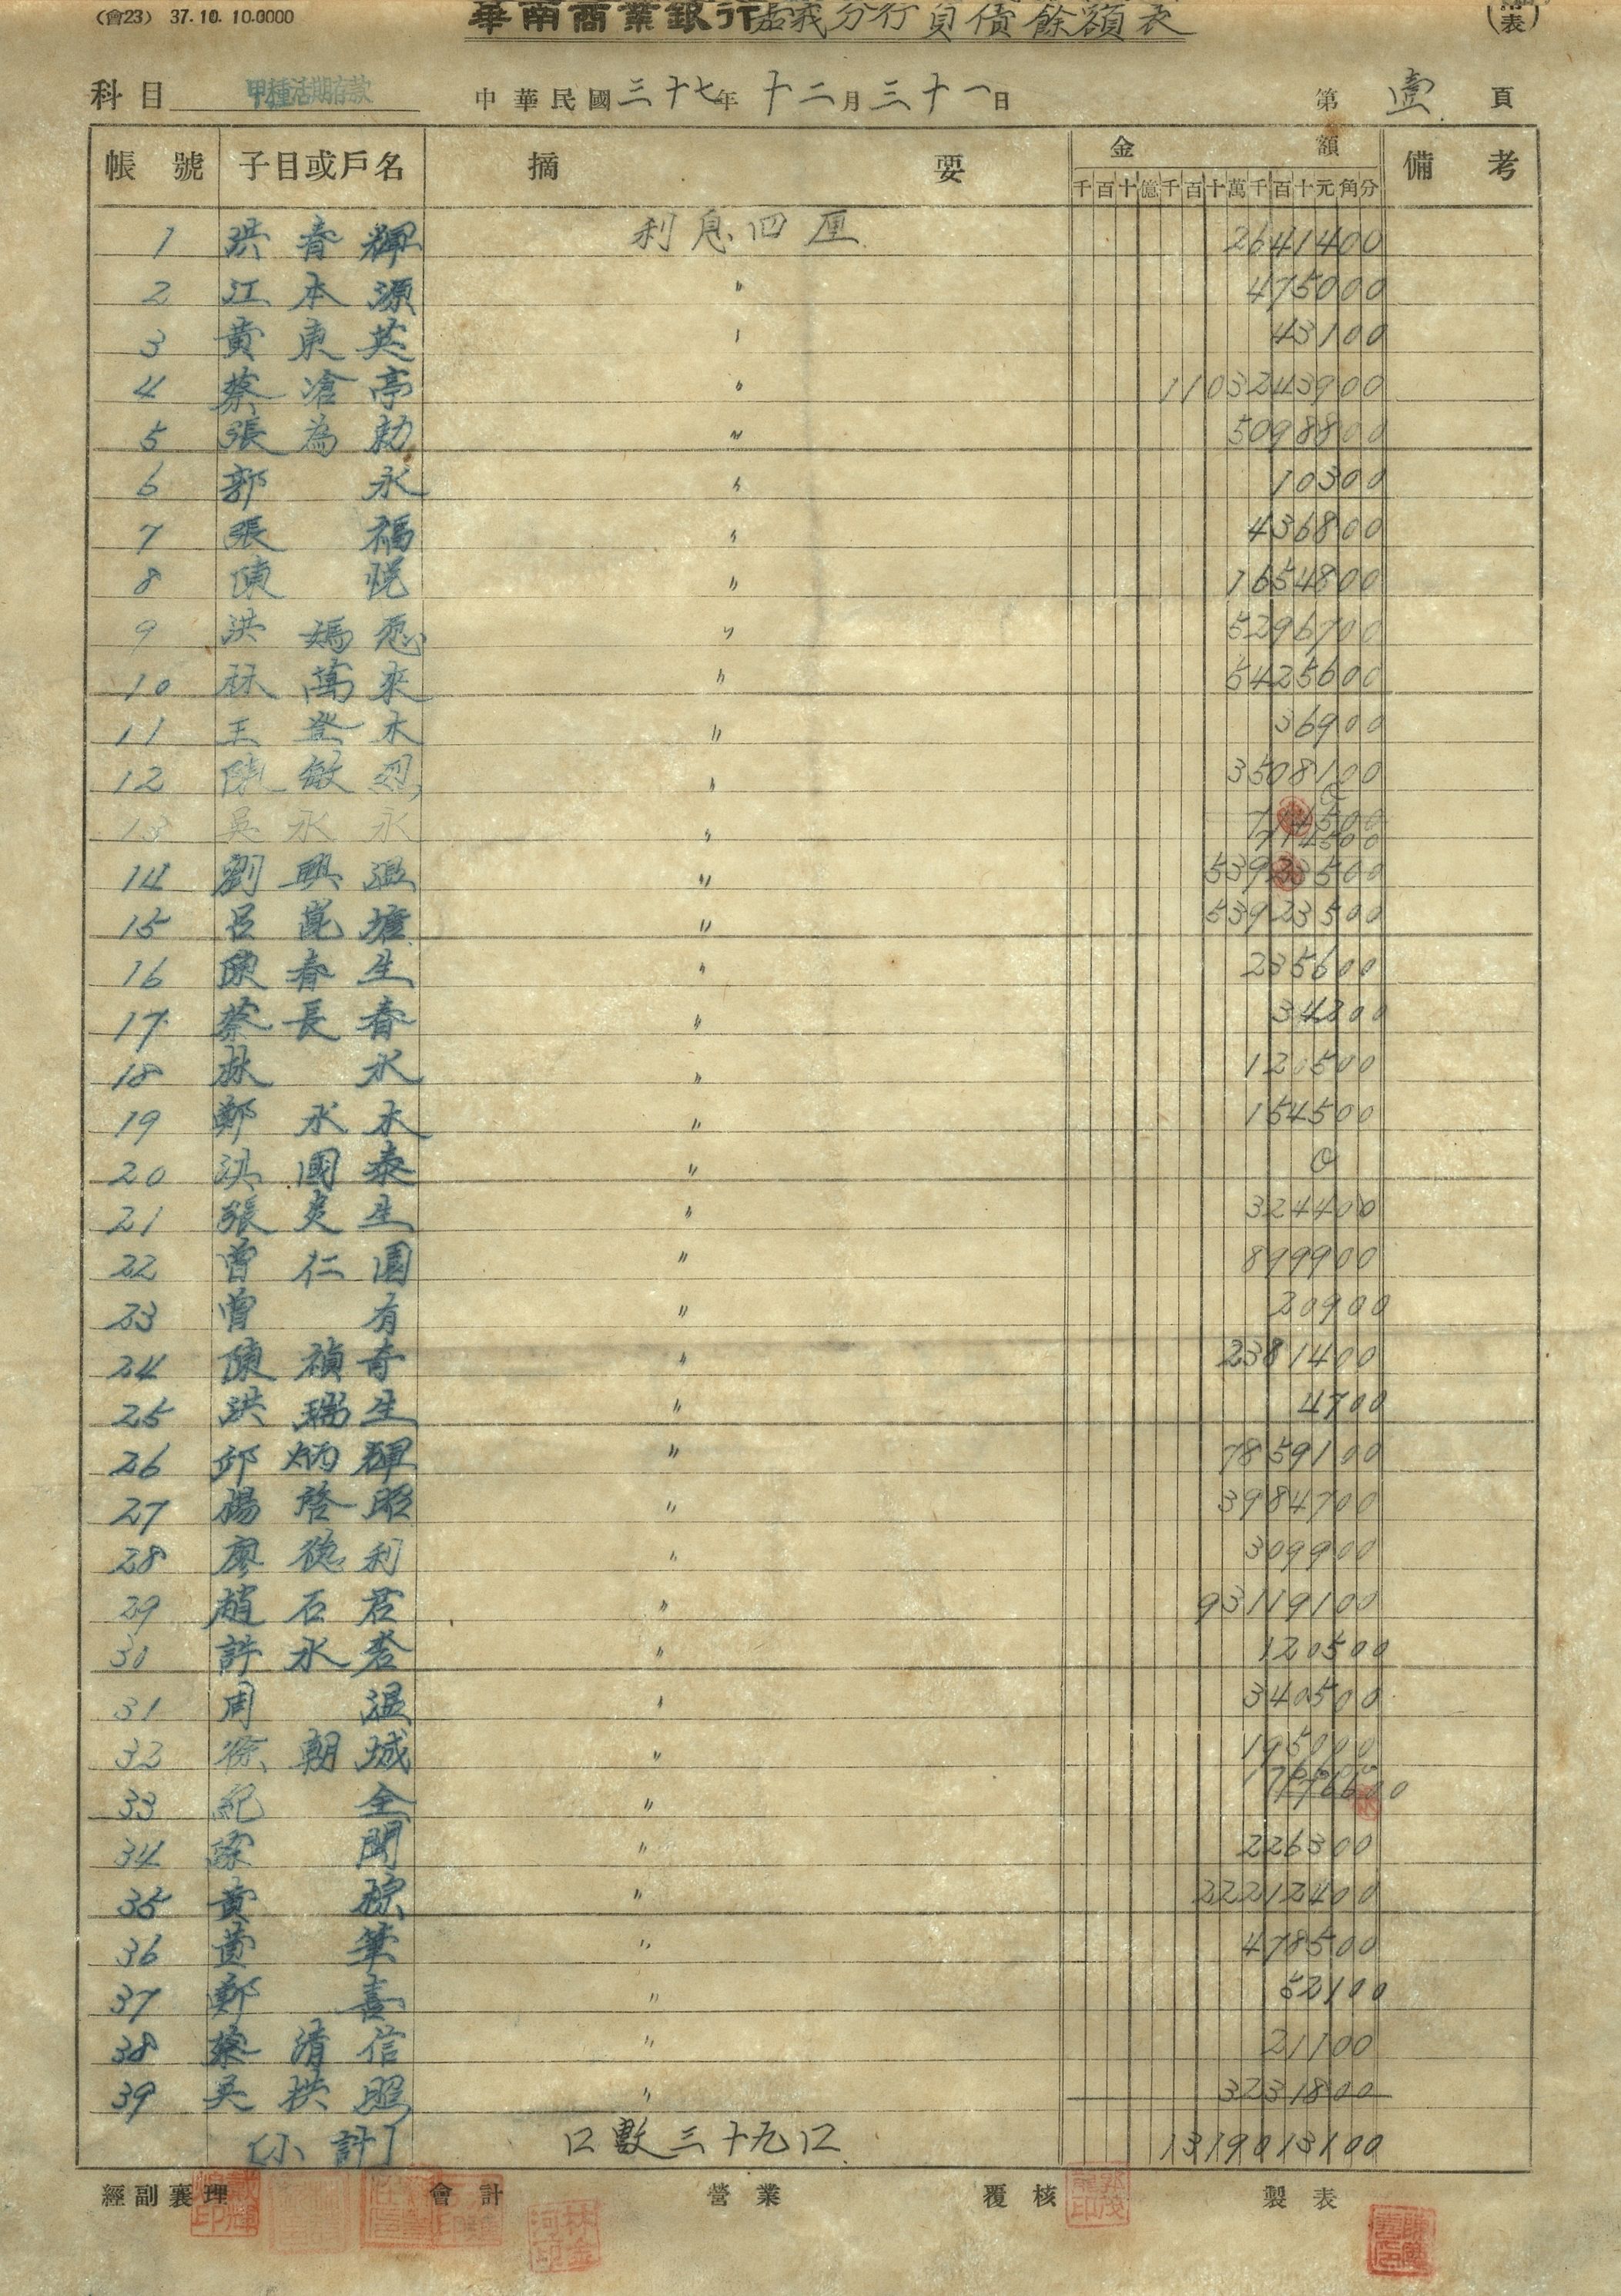 (會23) 37.10.10.0000
華南商業銀行嘉義分行負債餘額表
科目 甲種活期存款 中華民國三十七年十二月三十一日 第壹頁
帳號 子目或戶名 摘要 金額 備考
千百十億千百十萬千百十元角分
1 洪春輝 利息四厘 2641400
2 江本源 〃 475000
3 黃東英 〃 43100
4 蔡滄亭 〃 1103243900
5 張為勅 〃 5098800
6 郭永 〃 10300
7 張福 〃 436800
8 陳悅 〃 1654800
9 洪媽 〃 5296700
10 林萬來 〃 5425600
11 王登木 〃 36900
12 陳敏烈 〃 3508100
13 吳永永 〃 714500
14 劉興溫 〃 53923500
53923500
15 呂崑壚 〃
16 陳春生 〃 235600
17 蔡長春 〃 34200
18 林水 〃 120500
19 鄭水木 〃 154500
20 洪國泰 〃 0
21 張炎生 〃 324400
22 曾仁園 〃 899900
23 曾有 〃 20900
24 陳禎奇 〃 2381400
25 洪瑞生 〃 4700
26 邱炳輝 〃 7859100
27 楊啓昭 〃 3984700
28 廖德利 〃 309900
29 趙石君 〃 93119100
30 許水 〃 120500
31 周溫 〃 340500
32 徐朝城 〃 195000
33 紀全 〃
34 梁聞 〃 226300
35 黃粽 〃 22212400
36 黃筆 〃 478500
37 鄭喜 〃 52100
38 蔡清信 〃 21100
39 吳拱照 〃 3231800
〔小計〕 口數三十九口 1319013100
經副襄理 會計 營業 覆核 製表